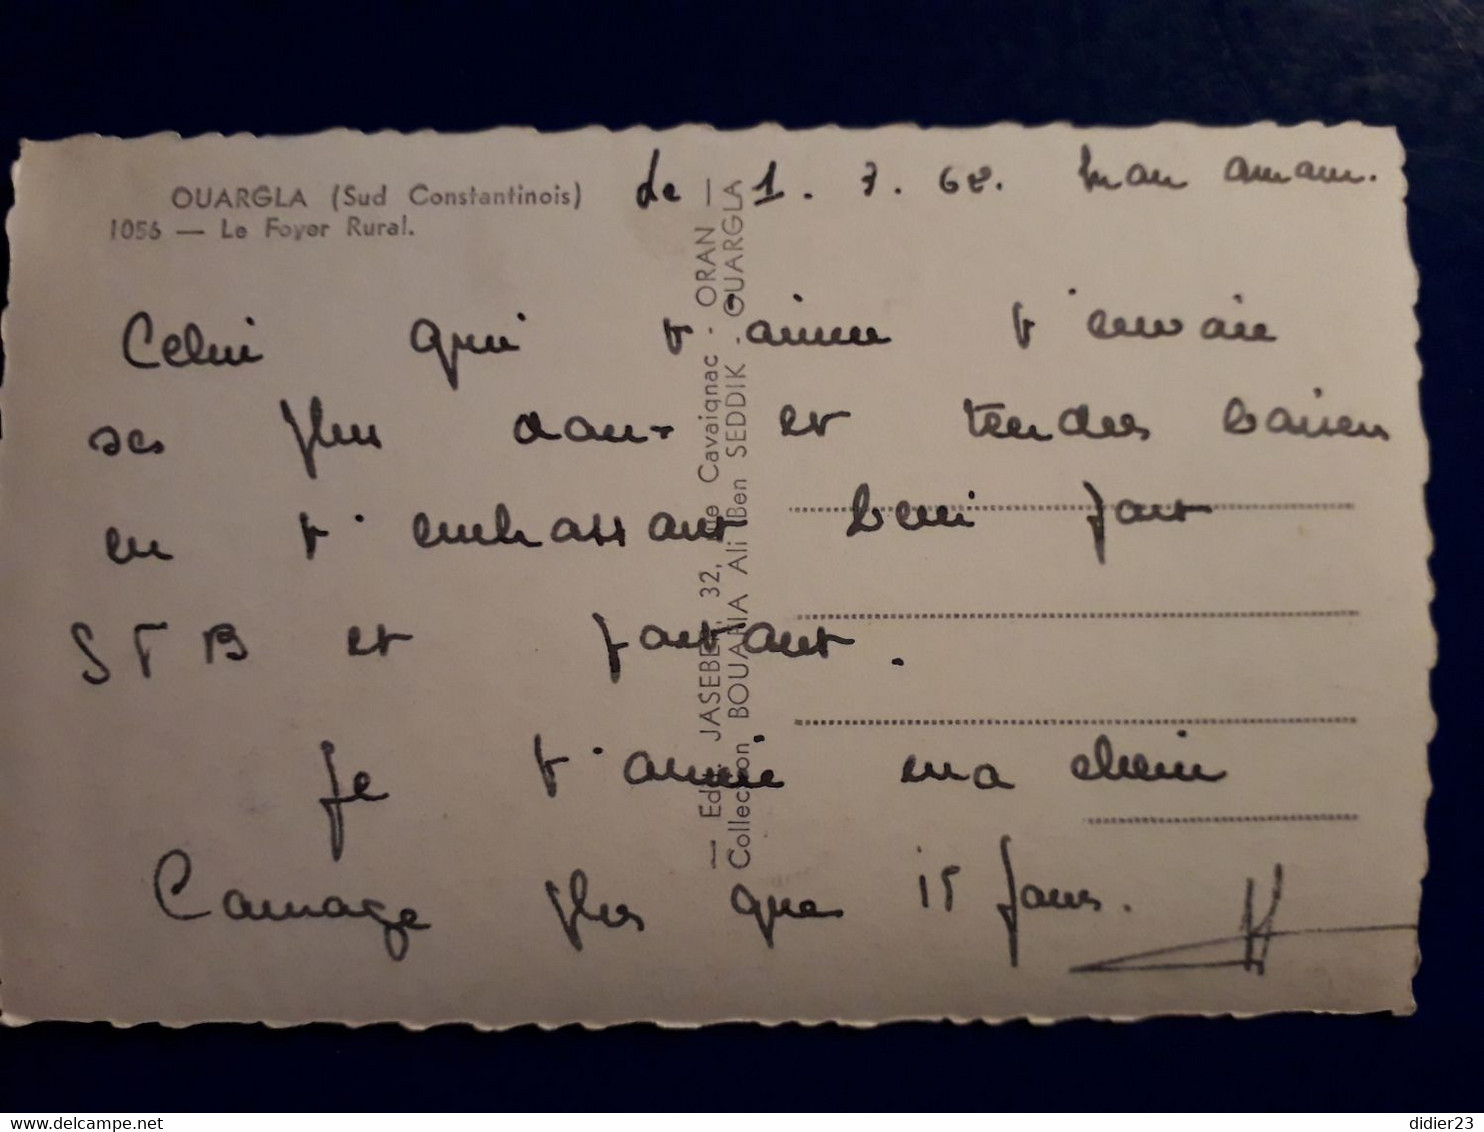 OUARGLA (Sud Constantinois)
1056 — Le Foyer Rural.
Le 1. 7. 62. Mon amour.
Celui qui t'aime t'envoie
ses plus doux et tendres baisers
en t'embrassant bien fort
STB et partout.
Je t'aime ma chérie
Courage plus que 15 jours.
— Edit. JASEBE, 32, Cavaignac - ORAN —
Collection BOUAFIA Ali Ben SEDDIK - OUARGLA
delcampe.net
didier23